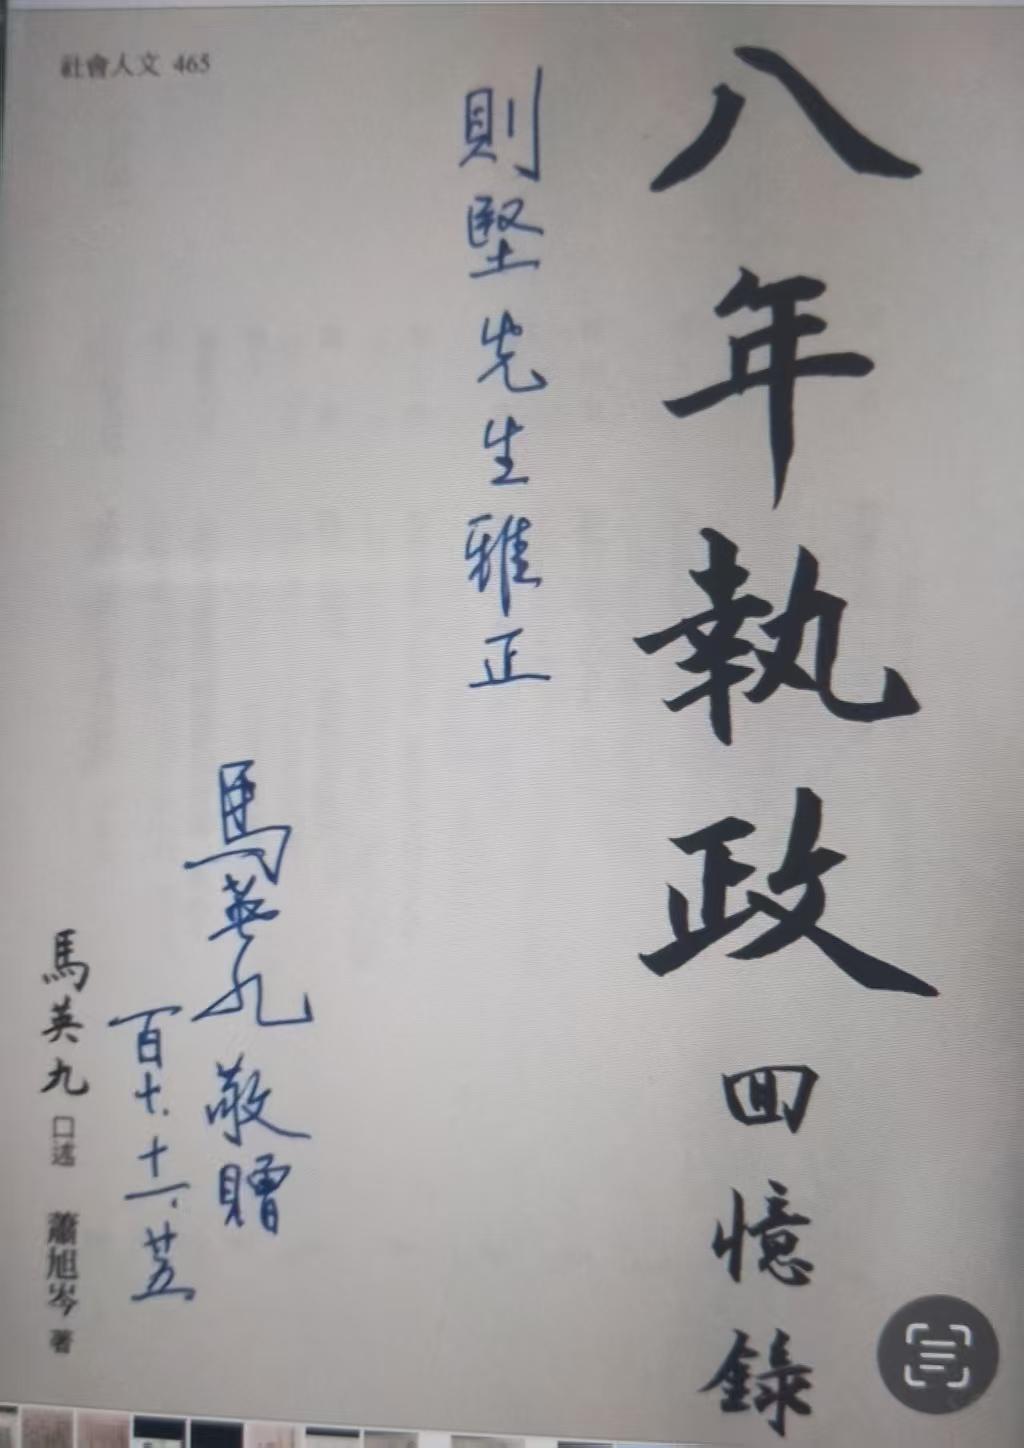 社會人文 465
八年執政回憶錄
則堅先生雅正
馬英九敬贈
百十.十一.廿五
馬英九 口述 蕭旭岑 著